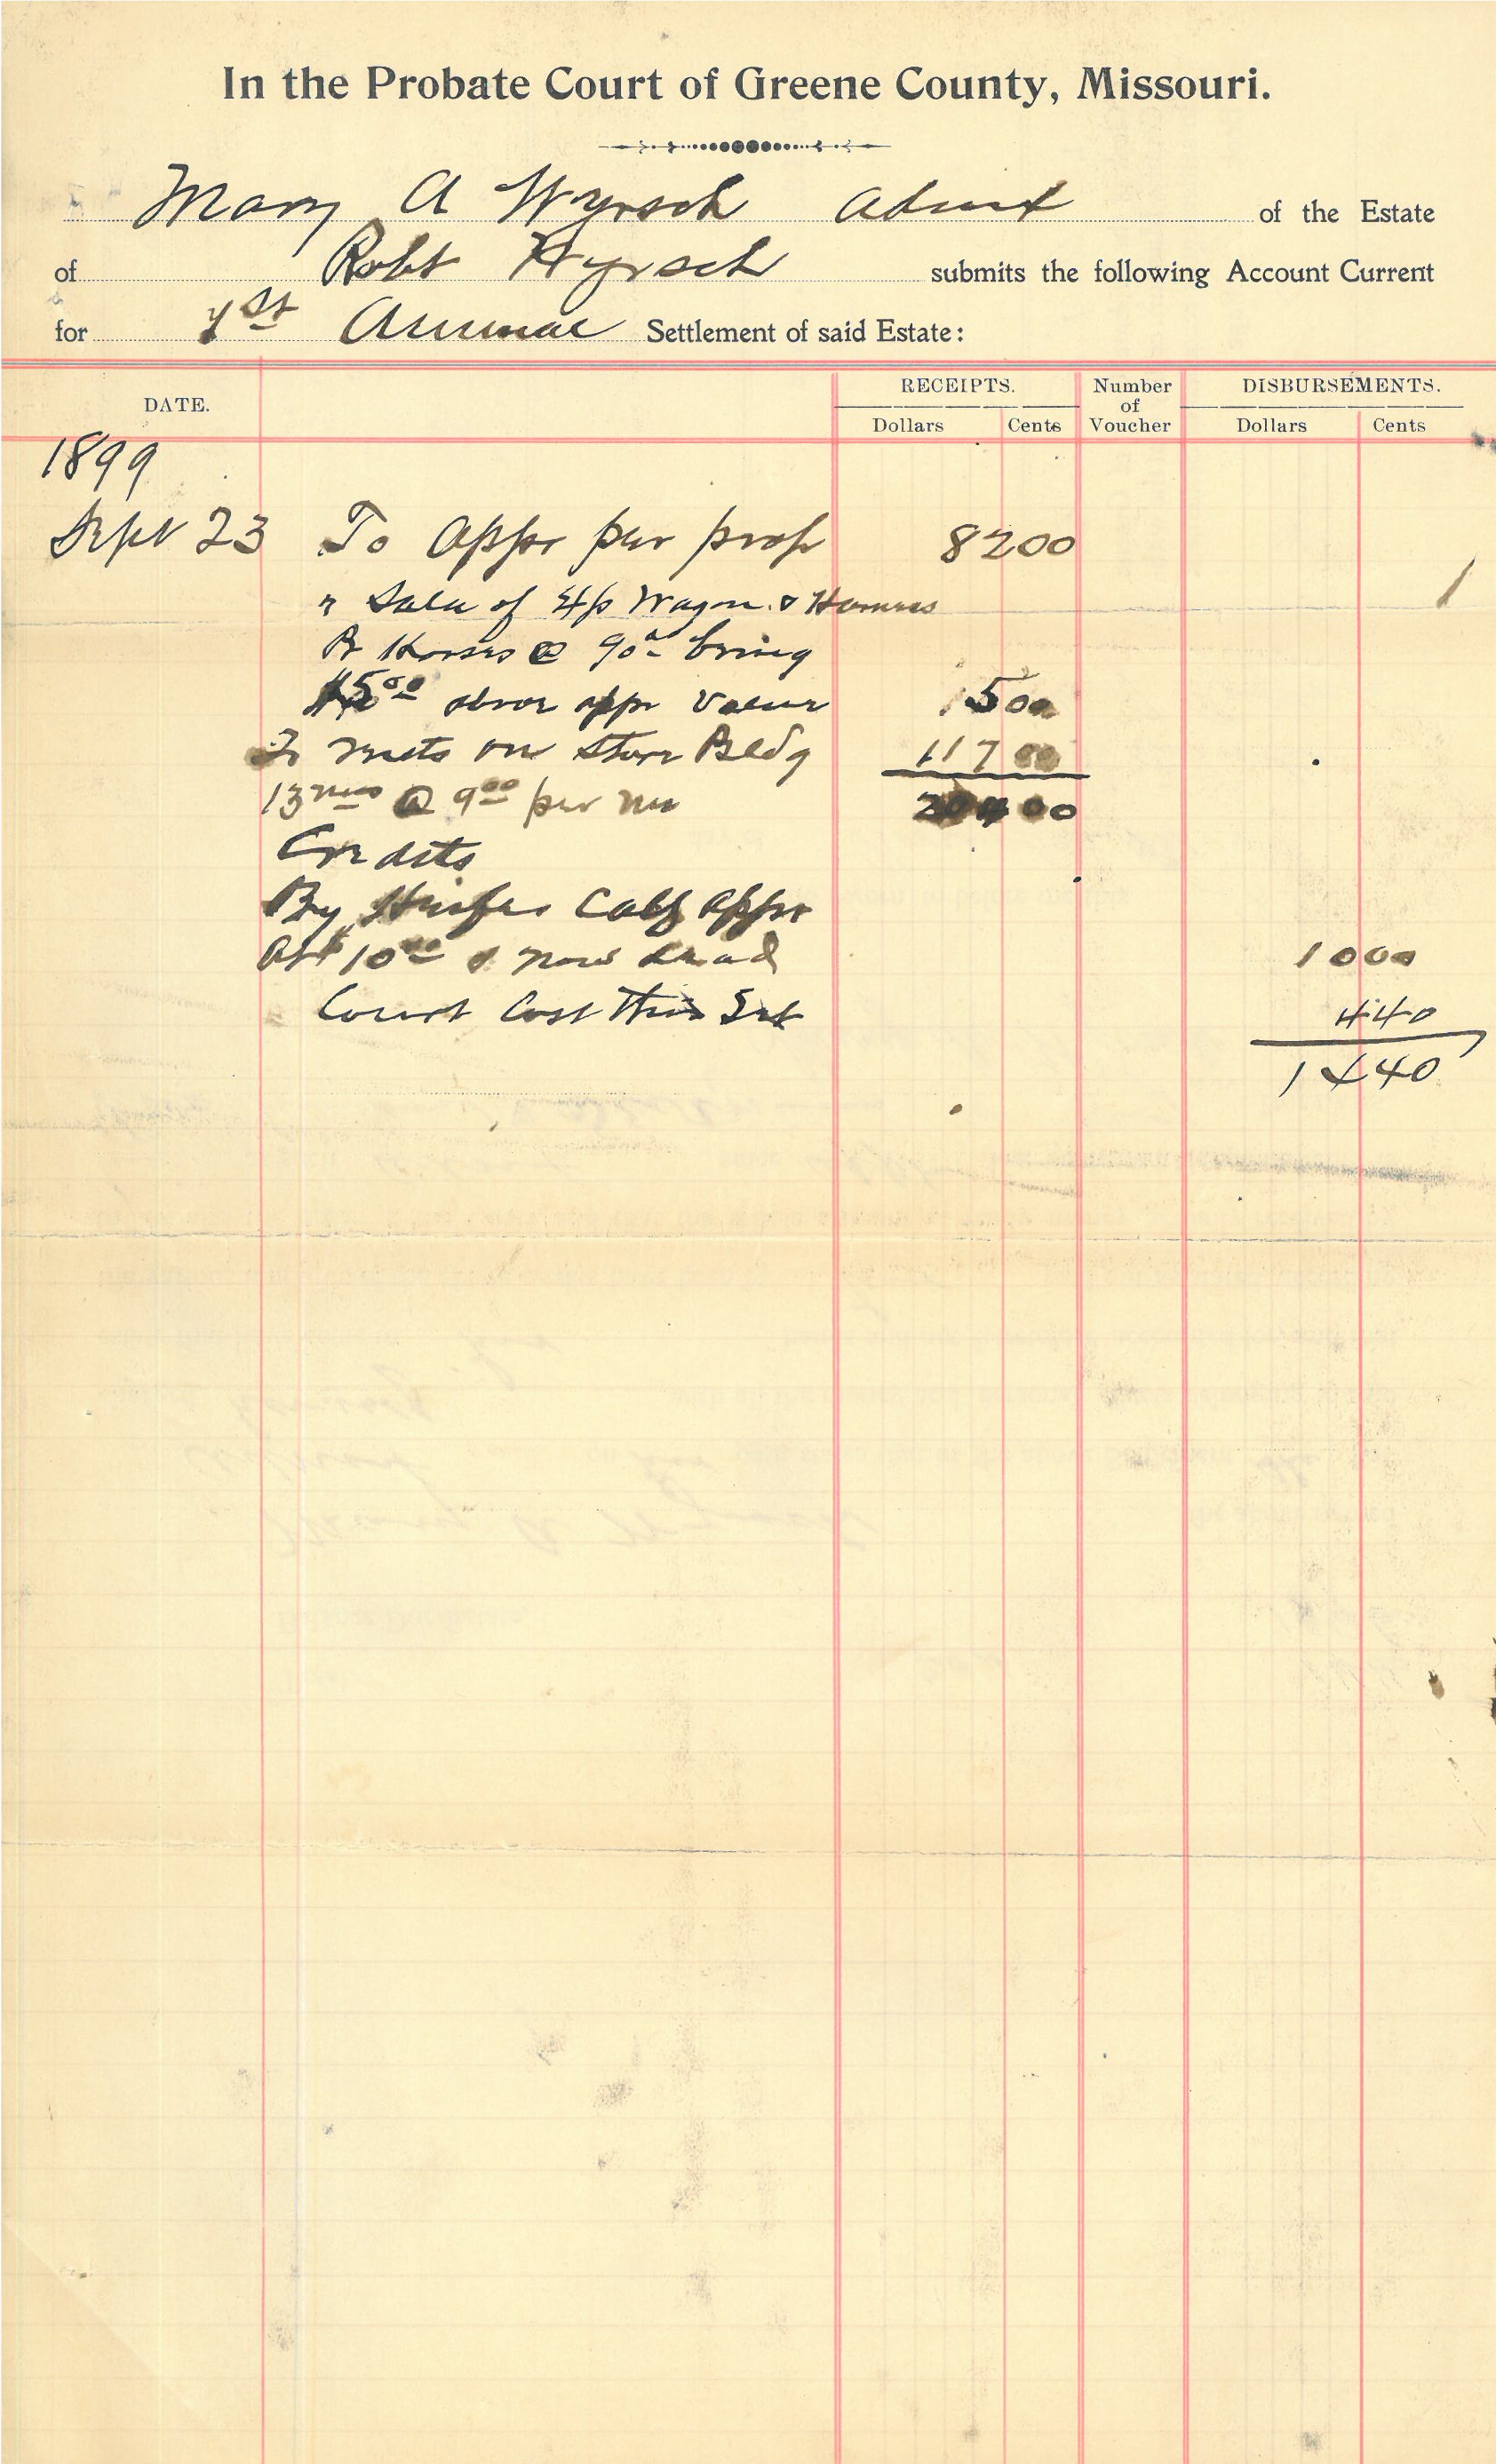 In the Probate Court of Greene County, Missouri.
Mary A Wyrsch Admx of the Estate
of Robt Wyrsch submits the following Account Current
for 1st Annual Settlement of said Estate:
DATE. RECEIPTS. Number of Voucher DISBURSEMENTS.
Dollars Cents Dollars Cents
1899
Sept 23 To Appr per prop 82 00
" Sale of Wagon & Harness
Horses @ 90 bring
$5 00 above appr value 5 00
To rents on Store Bldg 117 00
13 mos @ 9 00 per mo 204 00
Credits
By Heifer Calf appr
At $10 00 & now dead 10 00
Court Cost This Set 4 40
14 40